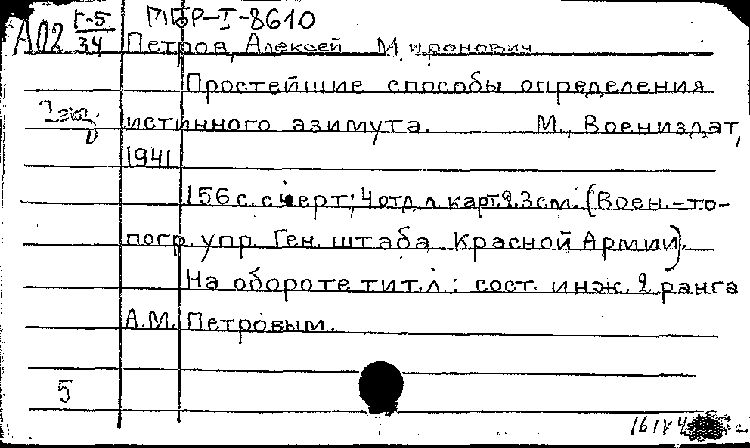 А02 Г-5/34 МПР-I-8610
Петров, Алексей Миронович
Простейшие способы определения
1 экз. истинного азимута. М., Воениздат,
1941
156 с. с черт; 4 отд. л карт. 23 см. (Воен.-то-
погр. упр. Ген. штаба Красной Армии).
На обороте тит. л: сост. инж. 2 ранга
А.М. Петровым.
5